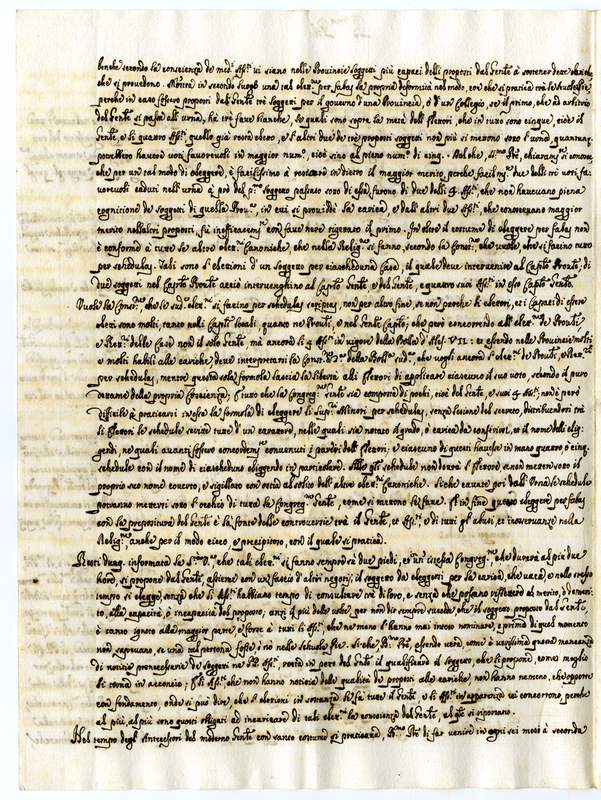 benche secondo la conscienza de med.i Ass.ti vi siano nelle Provincie Soggetti più capaci delli proposti dal Gen.le à sostener dette cariche
che si provedono. Mostra in secondo luogo una tal elez.ne per fabas la propria deformità nel modo, con che si pratica trà le
perche in caso fossero proposti dal Gen.le trè soggetti per il governo d'una Provincia, ò d'un Collegio, se il primo, che ad arbitrio
del Gen.le si passa all'urna, hà trè fave bianche, le quali sono sopra la metà delli Elettori, che in tutto sono cinque, cioè il
Gen.le, e li quattro Ass.ti quello già resta eletto, e l'altri due de trè proposti soggetti non più si mettono sotto l'urna, quantunq.
potrebbero havere voti favorevoli in maggior num.o, cioè sino al pieno num.o di cinq. Tal che, chiaram.te si conosce
che per un tal modo di eleggere, è facilissimo à restare in dietro il maggior merito, perche facilm.te due delli trè voti fa-
vorevoli caduti nell'urna à prò del p.o Soggetto passato sono di essi, furono di due delli 4 Ass.ti, che non havevano piena
cognitione de soggetti di quella Prov.a, in cui si provide la carica, e dall'altri due Ass.ti, che conoscevano maggior
merito nell'altri proposti, fù inefficacem.te con fave nere rigettato il primo. In oltre il costume di eleggere per fabas non
è conforme à tutte le altre elez.ni Canoniche, che nella Relig.ne si fanno, secondo la Const.ne che vuole, che si faccino tutte
per schedulas. Tali sono l'elezioni d'un Soggetto per ciascheduna Casa, il quale deve intervenire al Cap.lo Prov.le, di
due soggetti nel Cap.lo Prov.le acciò intervenghino al Cap.lo Gen.le, e del Gen.le, e quattro suoi Ass.ti in esso Cap.lo Gen.le.
Vuole la Const.ne, che le sud.e elez.ni si faccino per schedulas scriptas, non per altro fine, se non perche li elettori, et i capaci di essere
eletti sono molti, tanto nelli Capitoli locali, quanto ne Prov.li, e nel Gen.le Cap.lo; che però concorrendo all'elez.ne de Prov.li
e Rett.ri delle Case non il solo Gen.le, mà ancora li 4 Ass.ti in vigore della Bolla d'Aless. VII: et essendo nelle Provincie molti
e molti habili alle cariche, deve interpretarsi la Const.ne della Bolla sud.a, che vogli ancora l'elez.ne de Prov.li, e Rett.ri
per schedulas, mentre questa sola formola lascia la libertà alli Elettori di applicare ciascuno il suo voto, secondo il puro
dettame della propria Coscienza; E tutto che la Congreg.ne Gen.le sia composta di pochi, cioè del Gen.le, e suoi 4 Ass.ti, non è però
difficile à praticarsi in essa la formola di eleggere li Sup.ri Minori per schedulas, senza lesione del secreto, distribuendosi trà
li Elettori le schedule scritte tutte d'un carattere, nelle quali sia notato il grado, ò carica da conferirsi, et il nome delli elig-
gendi, ne quali avanti fossero concordem.te convenuti i pareri delli Elettori; e ciascuno di questi havesse in mano quattro ò cinq.
schedule con il nome di ciascheduno eliggendo in particolare. Alle q.li schedule non dovrà l'Elettore annettere sotto il
proprio suo nome coverto, e sigillato con ostia al solito dell'altre elez.ni Canoniche. Si che cavate poi dall'Urna le schedule
potranno mettersi sotto l'occhio di tutta la Congreg.ne Gen.le, come si mettono le fave. Et in fine questo eleggere per fabas
con la prepositura del Gen.le è la fonte delle controversie trà il Gen.le, et Ass.ti, e di tutti gl'abusi, et inosservanze nella
Relig.ne, anche per il modo cieco, e precipitoso, con il quale si pratica.
Resti dunq. informata la S.V., che tali elez.ni si fanno sempre sù due piedi, et in un'istessa Congreg.ne, che durerà al più due
hore, si propone dal Gen.le, assieme con un fascio d'altri negotij, il soggetto da eleggersi per la carica, che vaca, e nello stesso
tempo si elegge, senza che li Ass.ti habbiano tempo di consultare trà di loro, e senza che possano riflettere al merito, ò demeri-
to, alla capacità, ò incapacità del proposto, anzi il più delle volte, per non dir sempre succede, che il soggetto proposto dal Gen.le,
è tanto ignoto alla maggior parte, e forse à tutti li Ass.ti, che ne meno l'hanno mai inteso nominare, e prima di quel momento
non sapevano, se una tal persona fosse, ò nò nelle Scuole Pie. Si che essendo vera, come è verissima questa mancanza
di notitie prenecessarie de soggetti ne Ass.ti, resta in petto del Gen.le il qualificare il soggetto, che si propone, come meglio
li torna in acconcio; E li Ass.ti, che non hanno notizia delle qualità de proposti alle cariche, non hanno nemeno, che opporre
con fondamento, onde si può dire, che l'elezioni in sostanza le fà tutte il Gen.le e li Ass.ti in apparenza vi concorrono, perche
al più, al più sono questi obligati ad incaricare di tali elez.ni la conscienza del Gen.le, al q.le si riportano.
Nel tempo degl'Antecessori del moderno Gen.le con santo costume si praticava, di far venire in ogni sei mesi à seconda